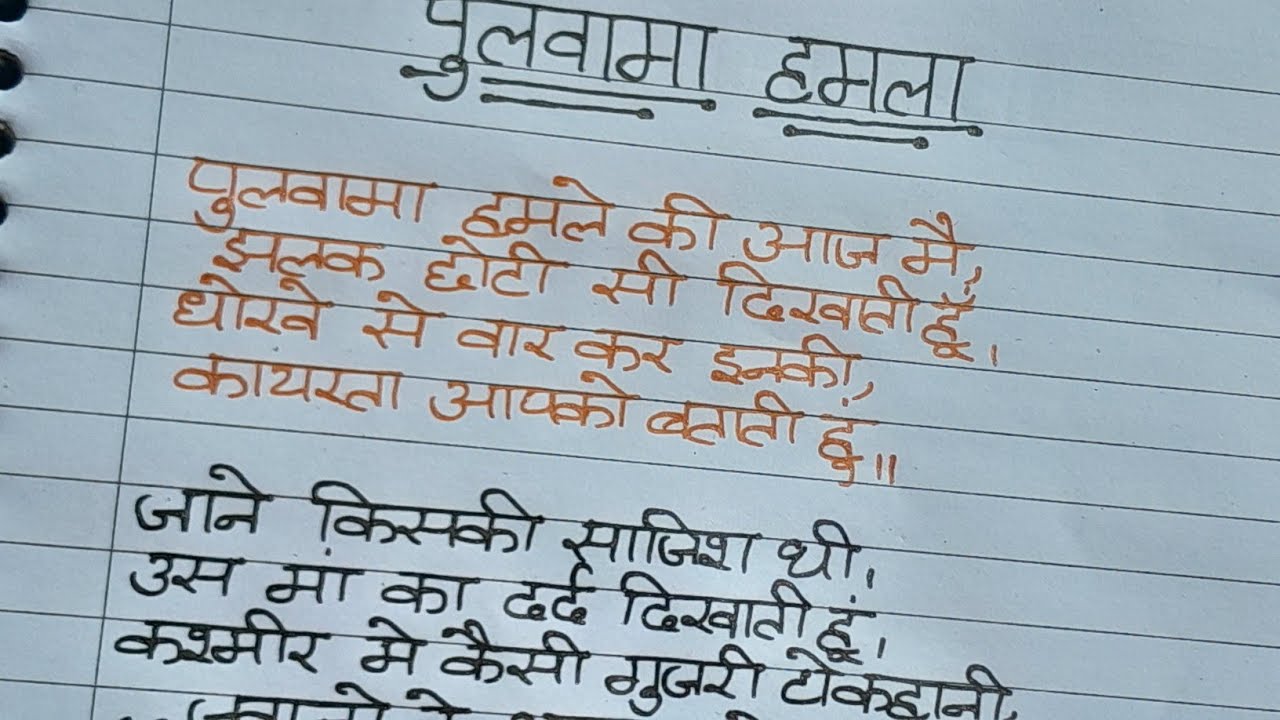 पुलवामा हमला
पुलवामा हमले की आज मैं,
झलक छोटी सी दिखाती हूँ।
धोखे से वार कर इनकी,
कायरता आपको बताती हूं॥
जाने किसकी साजिश थी,
उस मां का दर्द दिखाती हूं,
कश्मीर मे कैसी गुजरी ये कहानी,